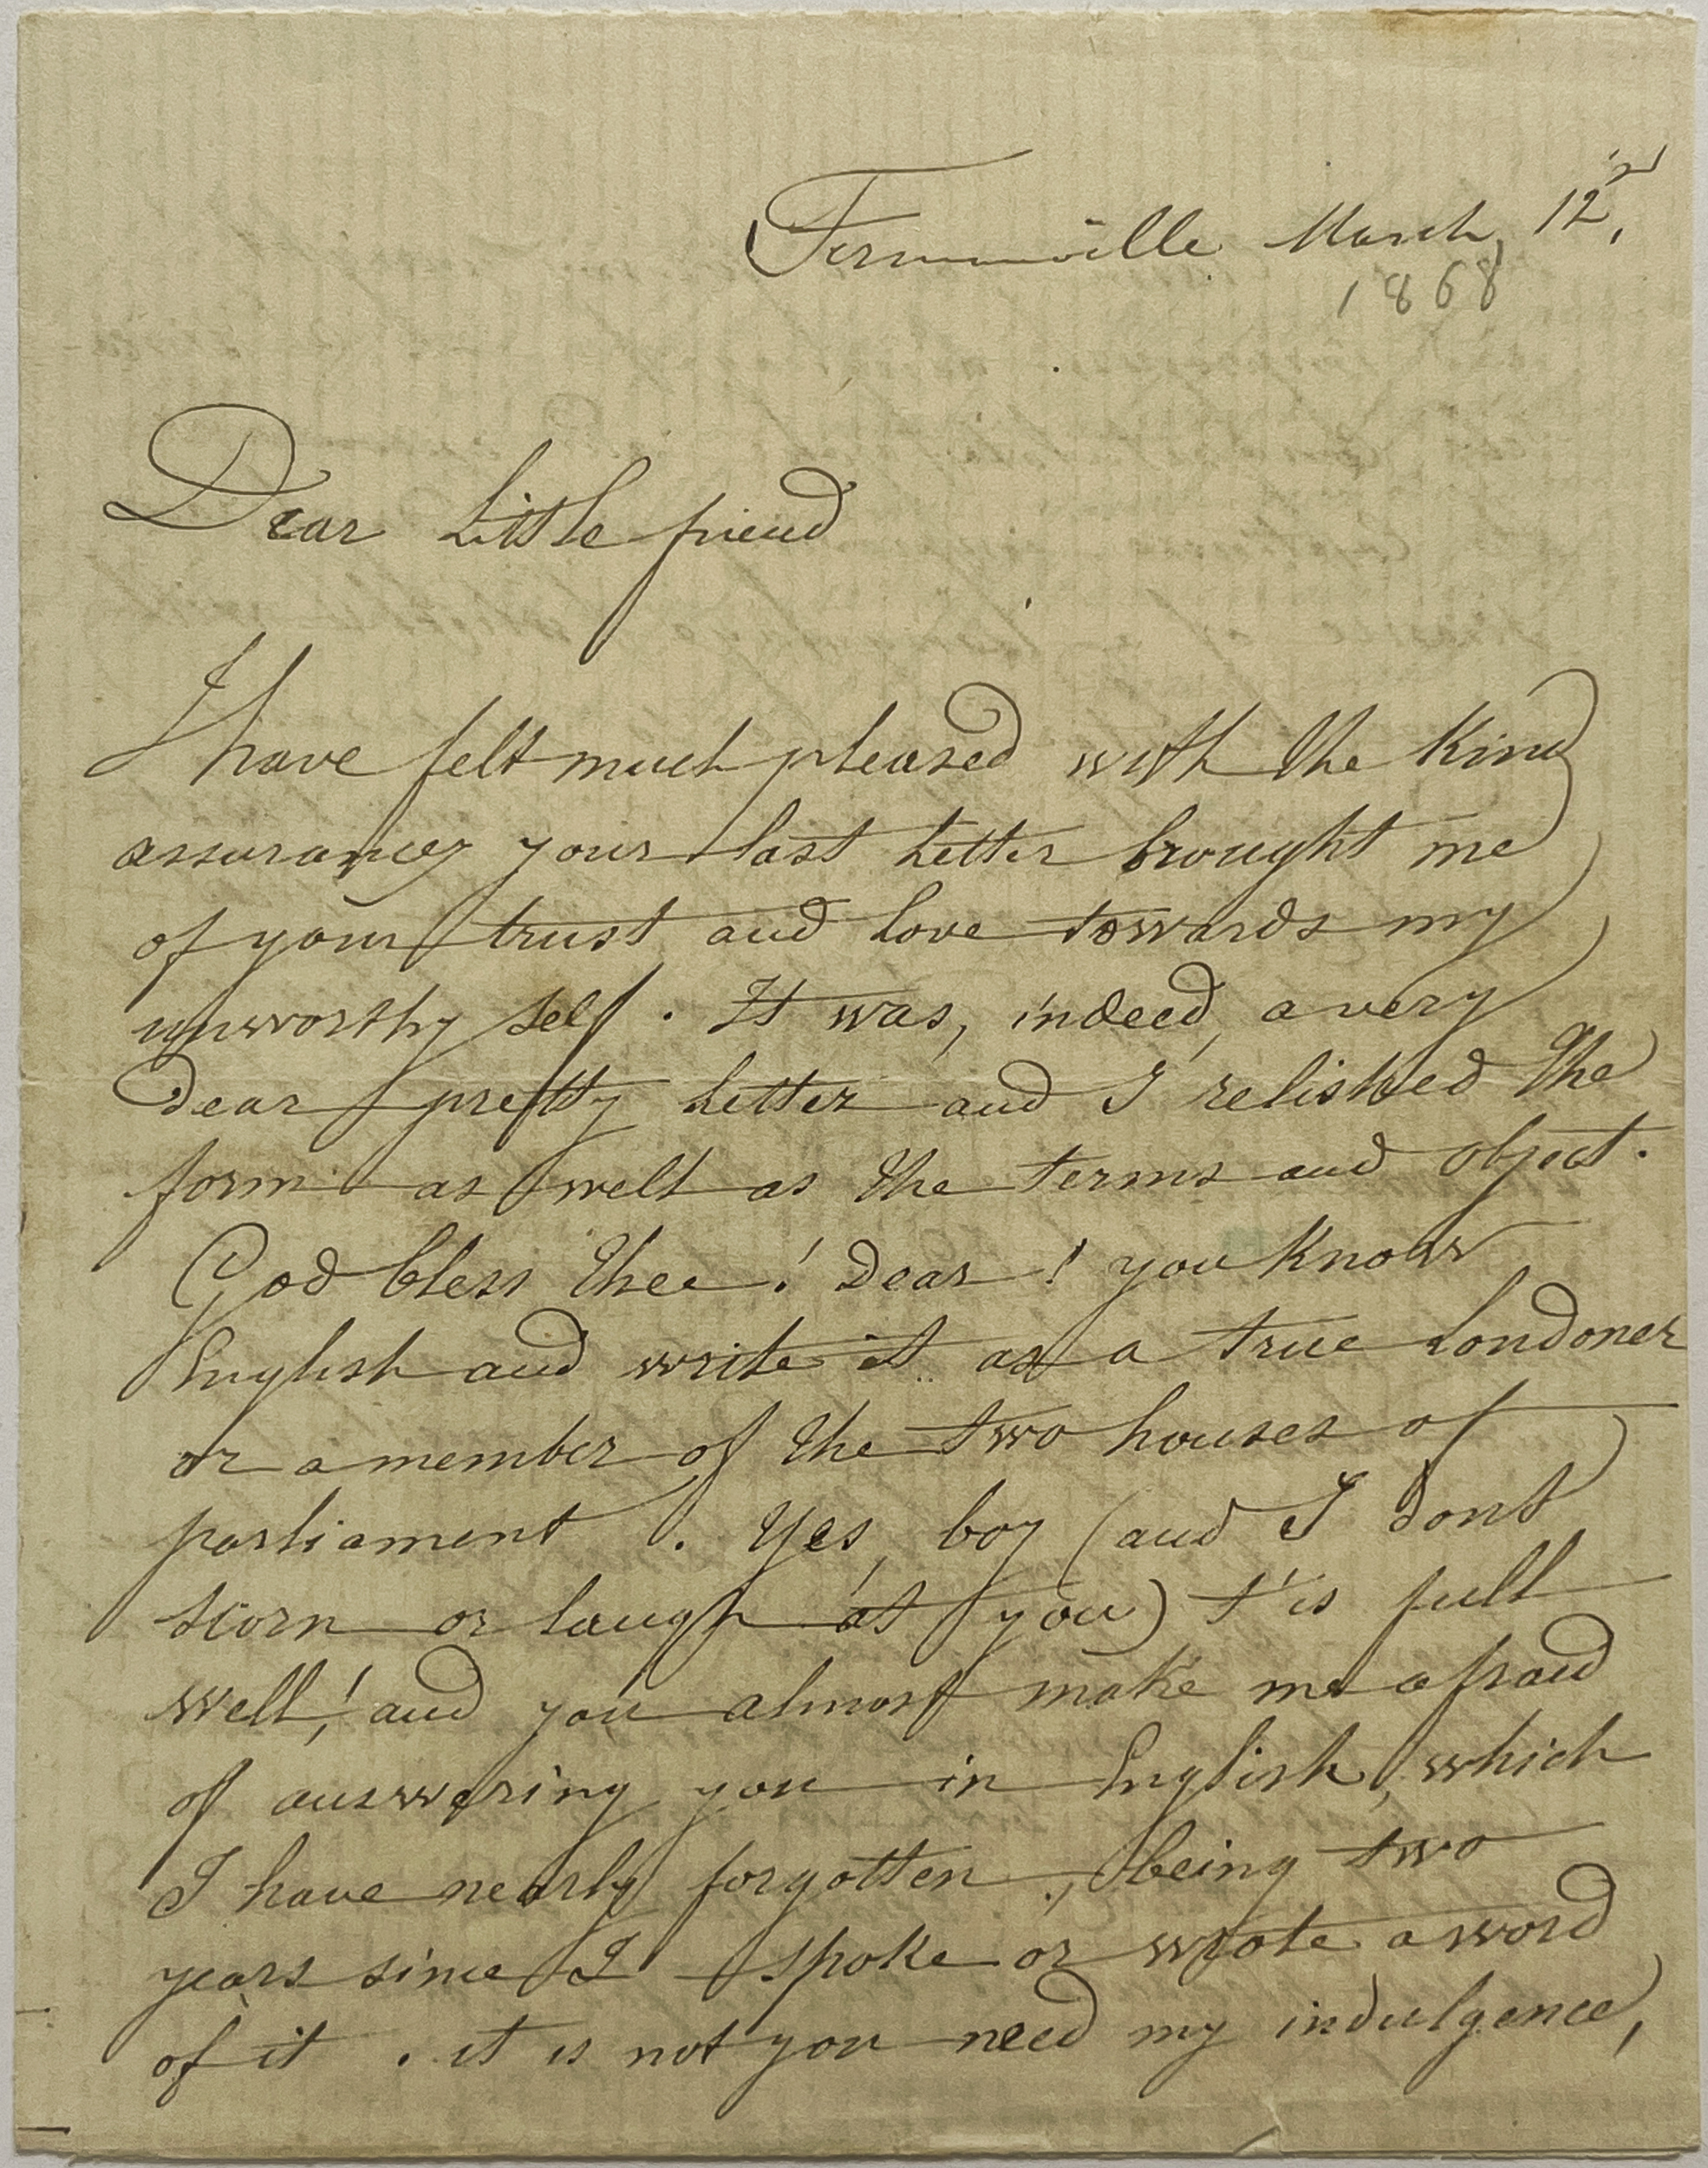 March, 12
1868
Dear Little friend
I have felt much pleased with the kind
assurances your last letter brought me
of your trust and love towards my
unworthy self. It was, indeed, a very
dear pretty letter and I relished the
form as well as the terms and object.
God bless thee! Dear! you know
English and write it as a true Londoner
or a member of the two houses of
parliament. Yes, boy (and I dont
scorn or laugh at you) t'is full
well! and you almost make me afraid
of answering you in English, which
I have nearly forgotten, being two
years since I spoke or wrote a word
of it. it is not you need my indulgence,